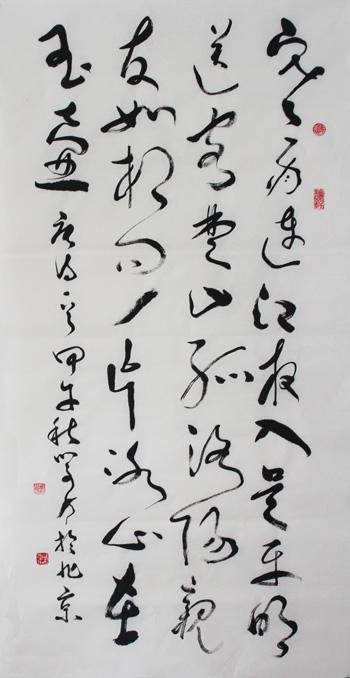 寒雨連江夜入吳平明
送客楚山孤洛陽親
友如相問一片冰心在
玉壺 唐詩 甲午秋 於北京